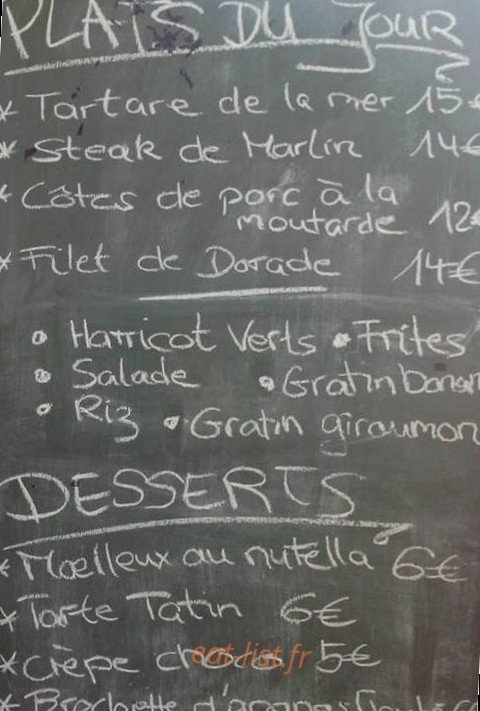 PLATS DU JOUR
* Tartare de la mer 15€
* Steak de Marlin 14€
* Côtes de porc à la
moutarde 12€
* Filet de Dorade 14€
• Harricot Verts • Frites
• Salade • Gratin banan
• Riz • Gratin giraumon
DESSERTS
* Moelleux au nutella 6€
* Tarte Tatin 6€
* Crèpe 5€
eat-list.fr
* Brochette d'ananas